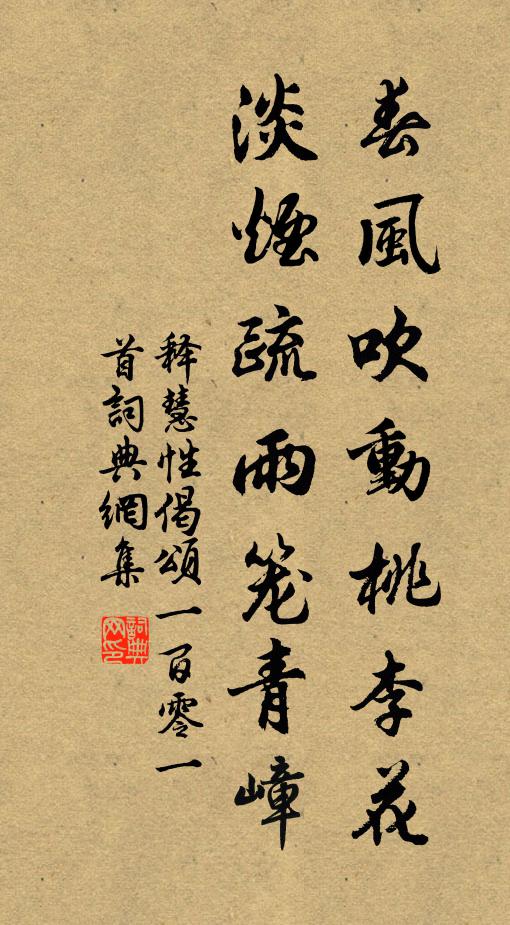 春風吹動桃李花
淡煙疏雨笼青嶂
释慧性偈頌一百零一
首詞典網集
詞典
网印